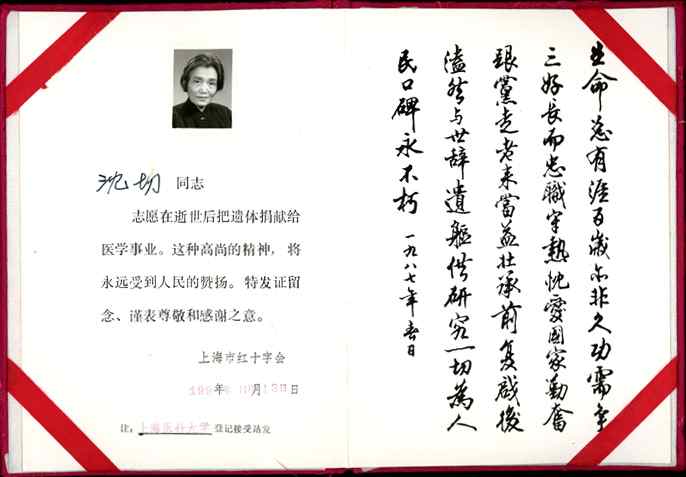 沈切 同志
志愿在逝世后把遗体捐献给
医学事业。这种高尚的精神，将
永远受到人民的赞扬。特发证留
念、谨表尊敬和感谢之意。
上海市红十字会
年 月 日
注：上海医科大学 登记接受站发
生命总有涯百歲尔非久功需年
三好長而忠職守熱忱愛国家勤奮
跟黨走老来當益壮承前复啟後
溘然与世辞遺軀供研究一切為人
民口碑永不朽 一九八七年春日